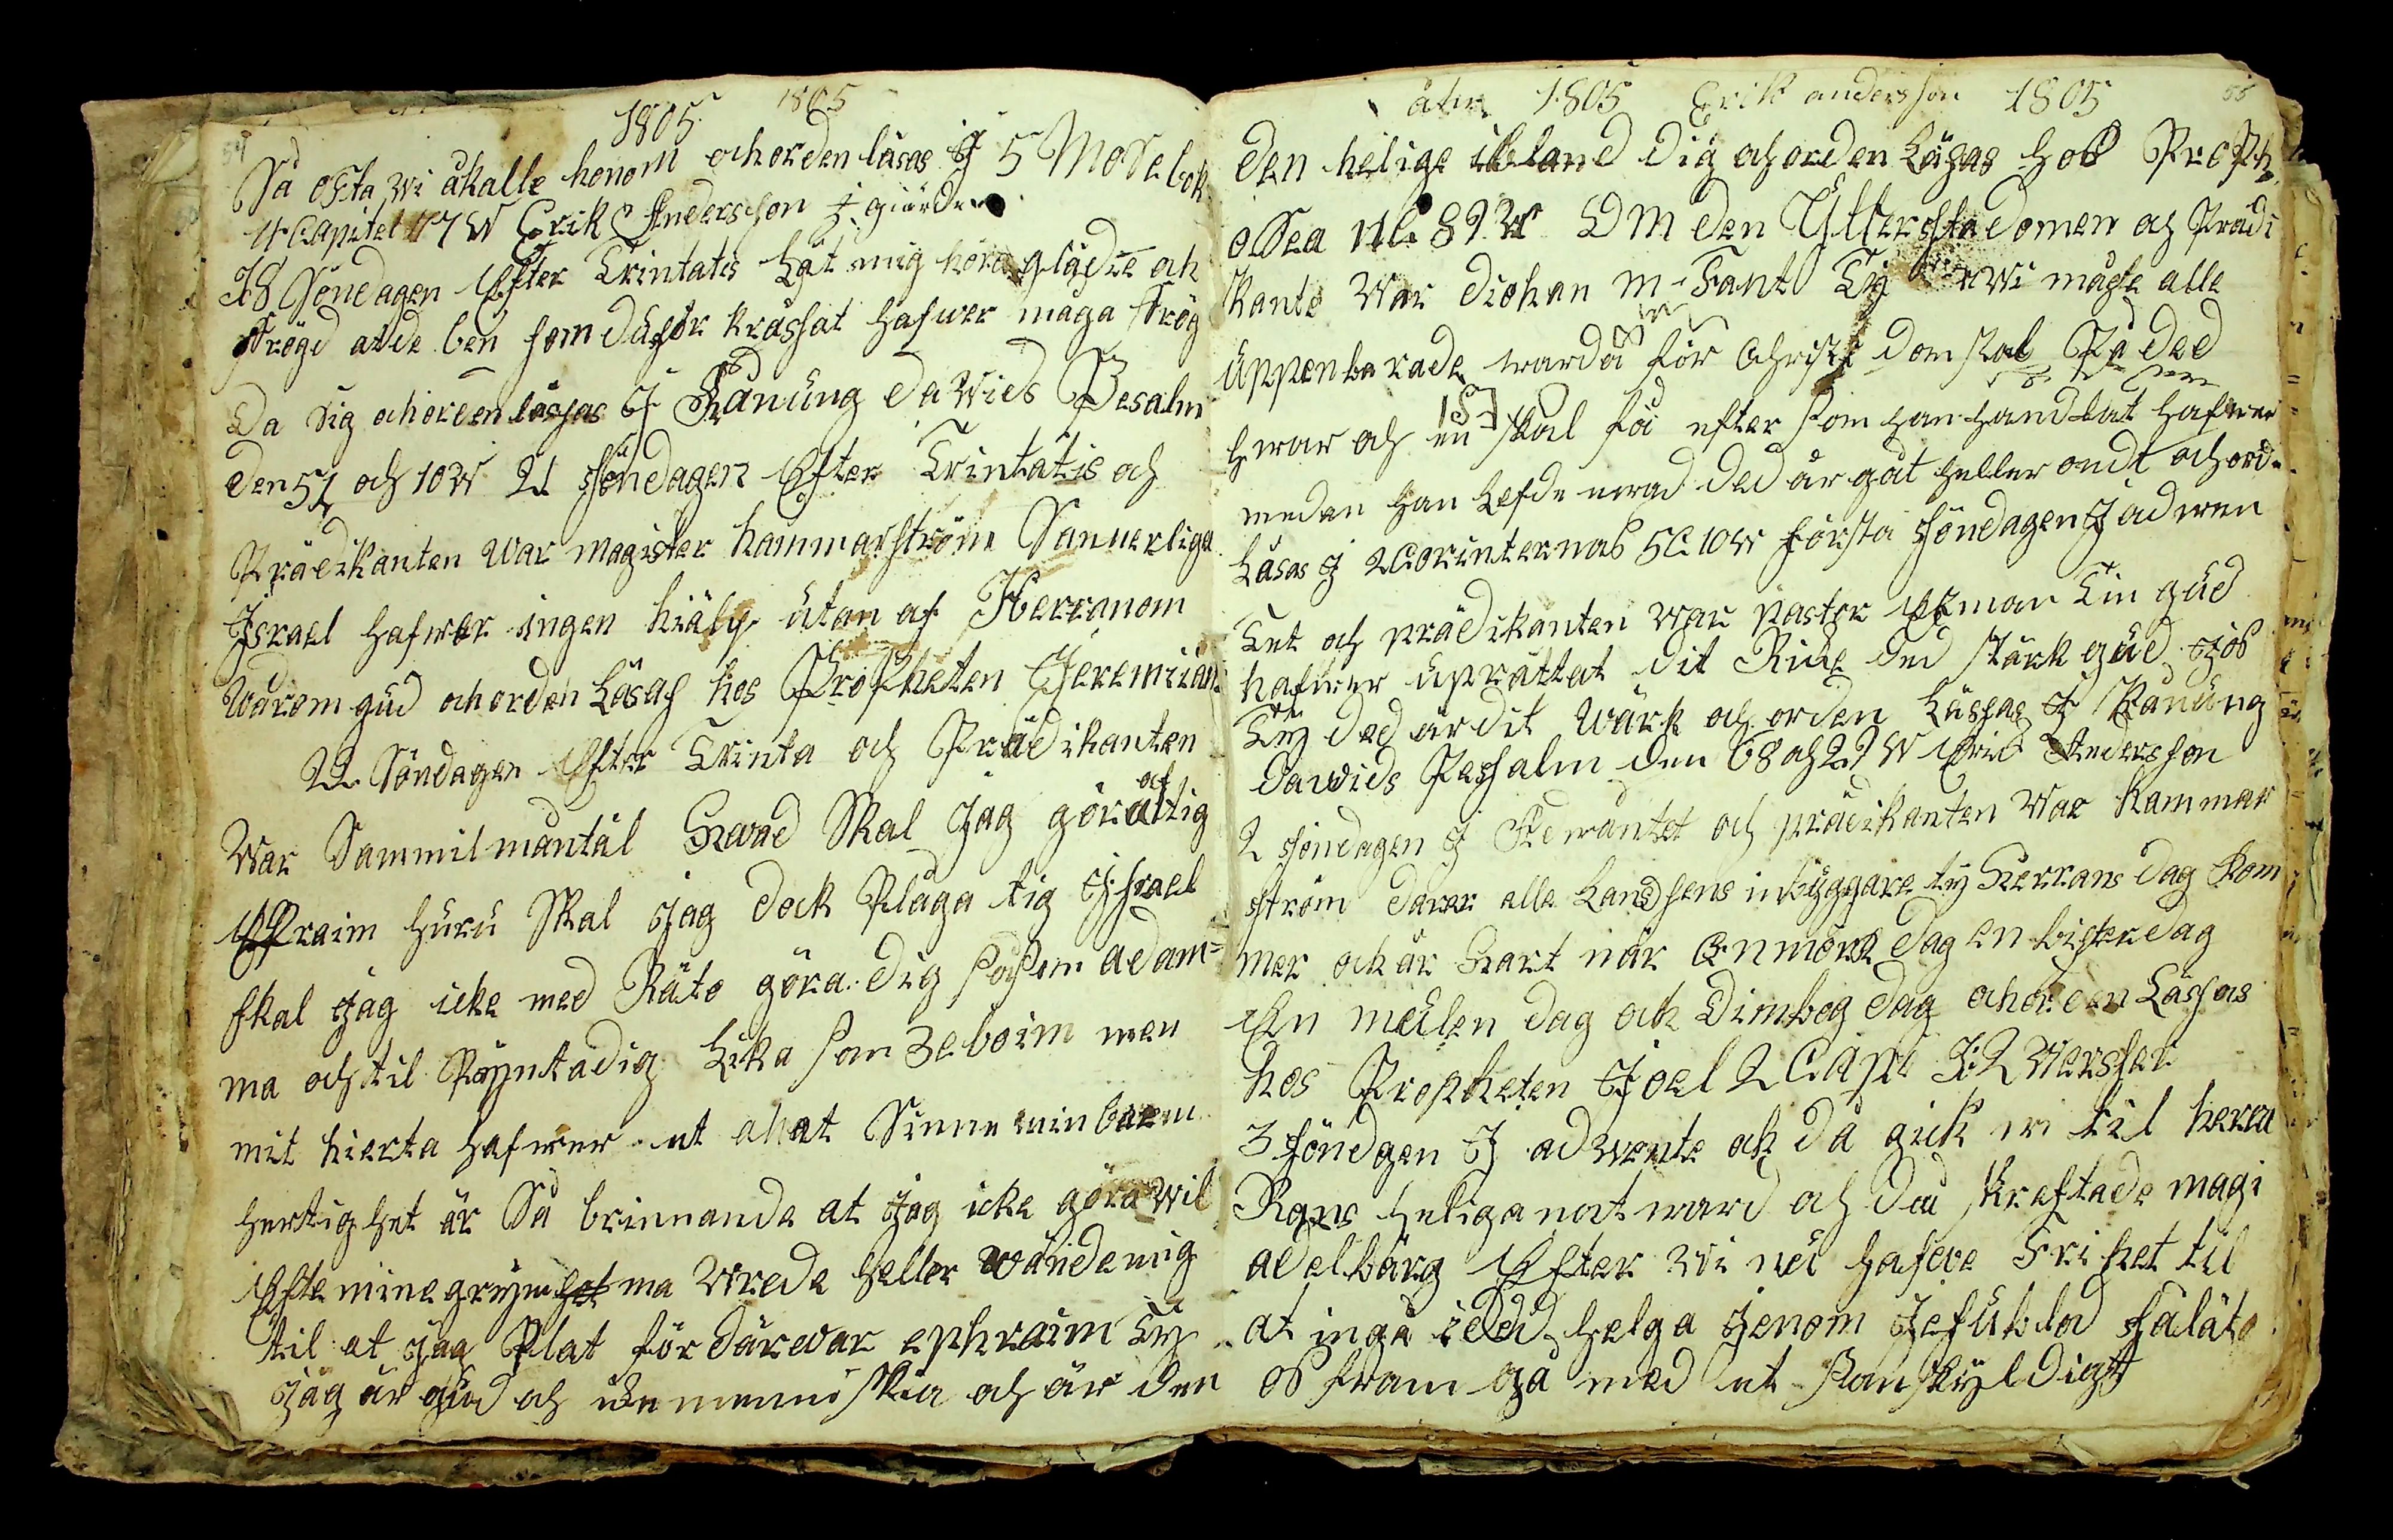 54
1805 1805
Så ofta wi åkalle honom ochorden läsas J 5 Mosebok
4 Capitel 7 W Erik Andersson J giärder
18 Söndagen Efter Trintatis Låt mig höra glädie ok
frögd at de ben som du för krossat hafwer måga frög
Da sig ochorden lässas J Kånung dawids Pesalm
den 51 och 10 W 21 söndagen Efter Trintatis och
Prädikanten war magister hammarström Sannerliga
Jsrael hafwer ingen hiälp utan af Herranom
wårom gud ochorden Läsas hos Propheten Jeremiam
22 Söndagen Efter Trinta och Prädikanten
War Sammilmantäl Hwad Skal Jag göra af tig
Effraim huru Skal Jag dock Plåga tig Jsrael
skal Jag icke med Räto göra dig såsom adam=
ma och til Pynta dig Lika som Zeboim men
mit hierta hafwer et anat Sinne min barm
hertighet är Så brinnande at Jag icke göra wil
Efte mine grym ma Wrede heller wände mig
til at Jag Plat fördärwar ephraim Ty
Jag är gud och icke menniskia och är den
åhr 1805 Erik andersson 1805 55
den helige ibland dig och orden Läsas hos Proph
osea 11 C 8 9 W OM den Ytterssta domen och Prädi
kante War Diohan M Fant Ty wi måste alle
uppenbarade warda för Christi domstol På ded
hwar och en skal få efter som han handlat hafwer
medan han Lefde ded är gåt heller ondt och orde
Läsas J 2 Corinternas 5 C 10 W första söndagen J adwen
Tet och prädikanten war pastor Ekman Tin gud
hafwer uprättat dit Rike ded stärk gud J os
Ty ded är dit Wärk och orden Lässas J Kånung
Dawids Pessalm den 68 och 29 W Eric Andersson
2 söndagen J Adwäntet och prädikanten War hammar
ström darer alle Landsens inbyggare ty Herrans dag kom
mer och är Hart när En mörk dag En bister dag
En mulen dag och Dimbog dag ochorden Lässas
hos Propheten Joel 2 Cap 1:2 Versser
3 söndgen J adwente och då gick wi til herra
Rans heliga natward och då skreftade magi
adelbärg Efter Wi nu hafwe Frihet til
at ingå i ded helga Jenom Jesu blod så Låto
os fram gå med et Sanskyldigt